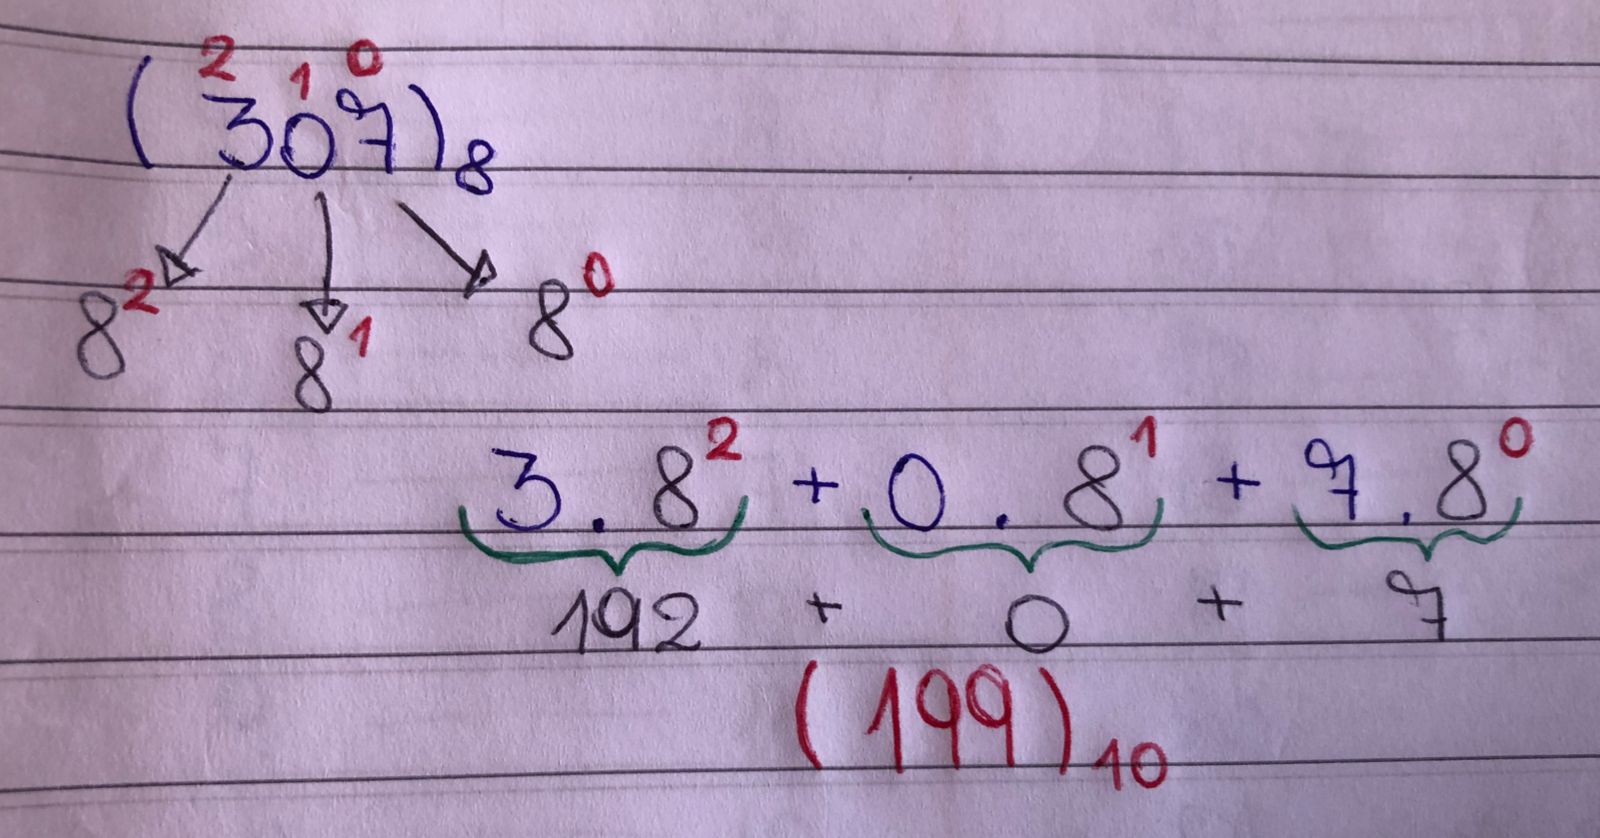 2 1 0
(307)₈
8² 8¹ 8⁰
3 . 8² + 0 . 8¹ + 7 . 8⁰
192 + 0 + 7
(199)₁₀